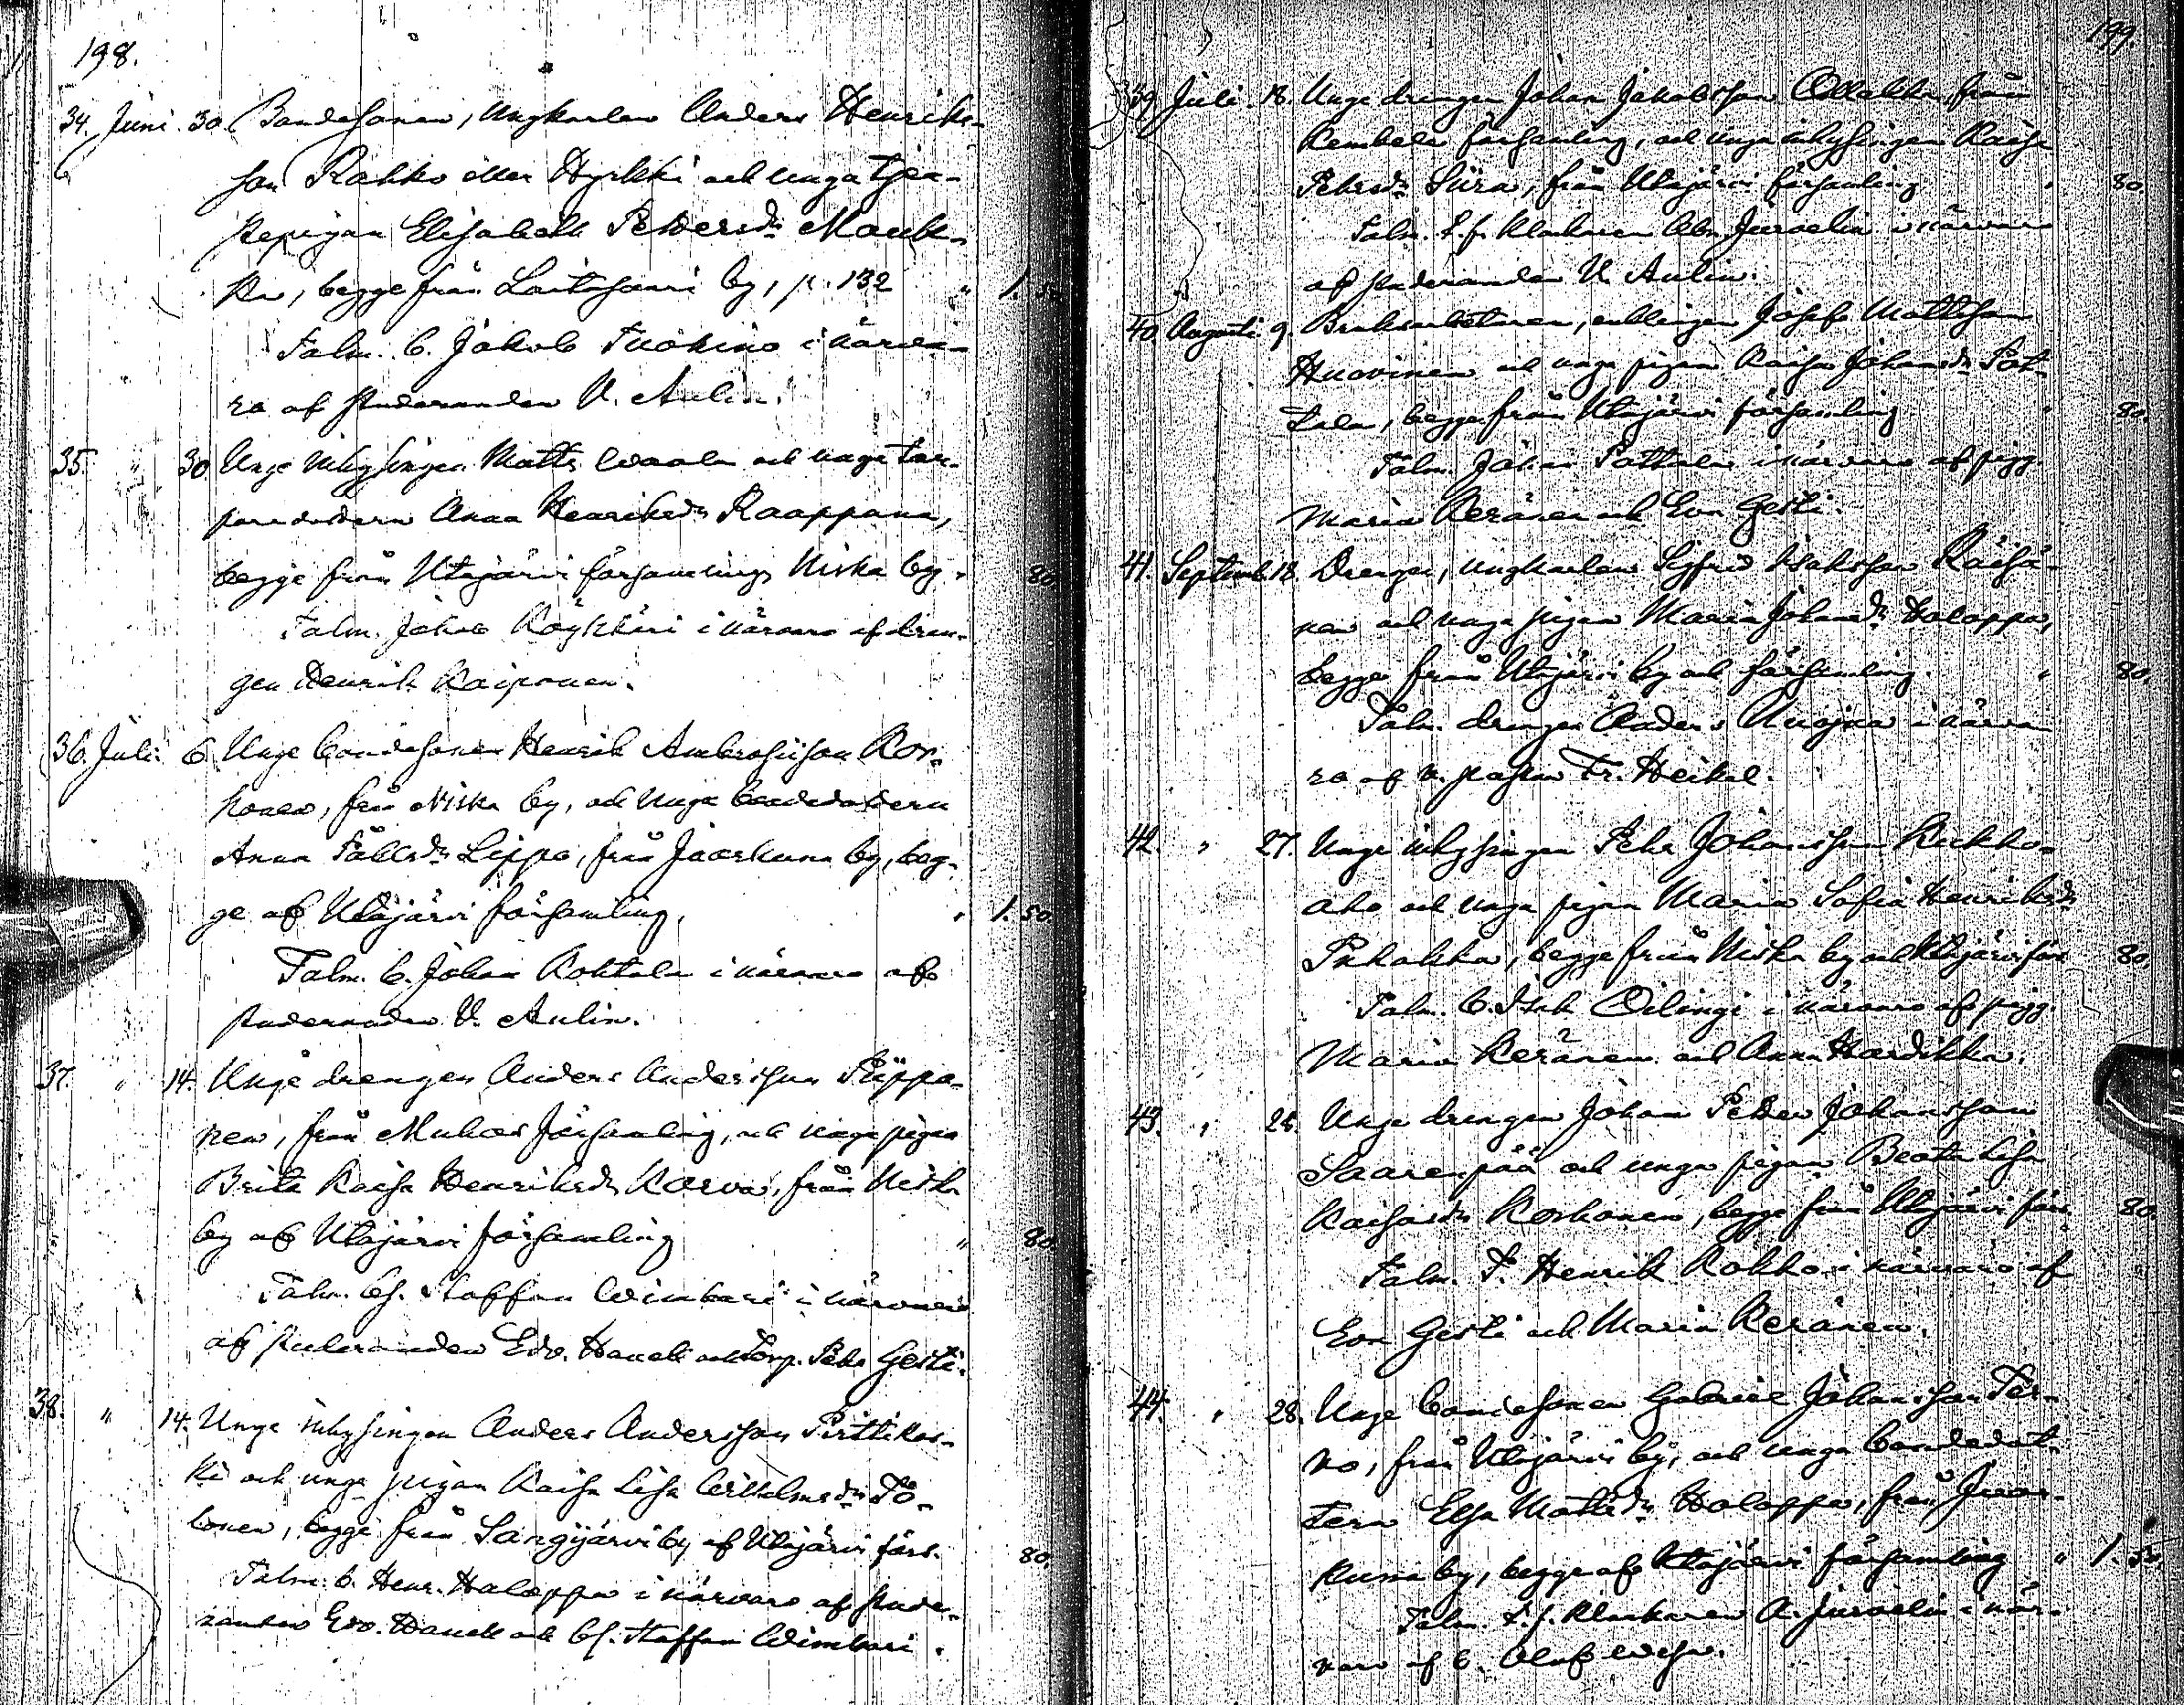 198.
34. Juni 30. Bondesonen, ungkarlen Anders Henriks-
son Rahko eller Hyrkki och unga tjen-
stepigan Elisabeth Pettersdr
, begge från Laitasaari by, p. 132 " 1. 50.
Talm. b. Jakob Tuohino i närva-
ro af studeranden V. Aulin.
35. " 30. Unge inhysingen Matts och unga tor-
paredottern Anna Henriksdr Raappana,
begge från Utajärvi församlings Niska by. 80.
Talm. Jakob i närvaro af dren-
gen Henrik Kaiponen.
36. Juli 6. Unge bondesonen Henrik Ambrosiison Kor-
honen, från Niska by, och unga bondedottern
Anna Pållsdr Lippo, från Juorkuna by, beg-
ge af Utajärvi församling. " 1. 50.
Talm. b. Johan Rohtala i närvaro af
studeranden V. Aulin.
37. " 14. Unge drengen Anders Andersson Piippo-
nen, från Muhos församling, och unga pigan
Brita Kaisa Henriksdr Karva, från Niska
by af Utajärvi församling " 80.
Talm. bs. Staffan Wimbari i närvaro
af studeranden Edv. Hanell och torp. Pehr Gesti.
38. " 14. Unge inhysingen Anders Andersson Pirttikos-
ki och unga pigan Kaisa Lisa Wilhelmsdr Tö-
lönen, begge från Sangijärvi by af Utajärvi förs. 80.
Talm. b. Henr. Holappa i närvaro af stude-
randen Edv. Hanell och bs. Staffan Wimbari.
199.
39. Juli 18. Unge drengen Johan Jakobsson Ollakka, från
Kempele församling, och unga inhysingen Kaisa
Pehrsdr Siira, från Utajärvi församling " 80.
Talm. t.f. klockaren Abr. Juvelin i närvaro
af studeranden V. Aulin.
40. Augusti 9. Bruksarbetaren, enklingen Josef Mattsson
Huovinen och unga pigan Kaisa Johansdr Pot-
tala, begge från Utajärvi församling " 80.
Talm. Johan Pottala i närvaro af pigg.
Maria Keränen och Eva Gesti.
41. Septemb. 18. Drengen, ungkarlen Sigfrid Isaksson Räisä-
nen och unga pigan Maria Johansdr Holappa,
begge från Utajärvi by och församling. " 80.
Talm. drengen Anders Kuojna i närva-
ro af v. pastor Fr. Heikel.
42. " 27. Unge inhysingen Pehr Johansson Rukko-
aho och unga pigan Maria Sofia Henriksdr
Pahakka, begge från Niska by och Utajärvi för. 80.
Talm. b. Isak Oilingi i närvaro af pigg.
Maria Keränen och Anna Hardikka.
43. " 28. Unge drengen Johan Petter Johansson
Saarenpää och unga pigan Beata Lisa
Kaisasdr Korhonen, begge från Utajärvi förs. 80.
Talm. T. Henrik Rahko i närvaro af
Eva Gesti och Maria Keränen.
44. " 28. Unge bondesonen Gabriel Johansson Ter-
vo, från Utajärvi by, och unga bondedot-
tern Elsa Mattsdr Holappa, från Juor-
kuna by, begge af Utajärvi församling " 1. 50.
Talm. t.f. klockaren A. Juvelin i när-
varo af b. Olof